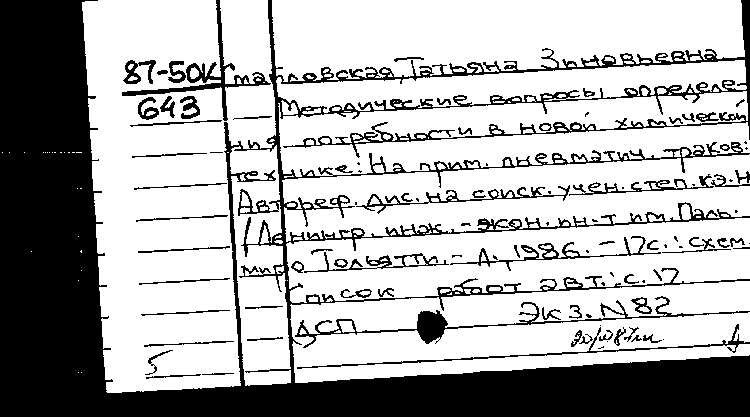 87-50К
643
майловская, Татьяна Зиновьевна
Методические вопросы определе-
ния потребности в новой химической
технике: На прим. пневматич. траков:
Автореф. дис. на соиск. учен. степ. к.э.н
/Ленингр. инж.-экон. ин-т им. Паль-
миро Тольятти. - Л., 1986. - 17с.: схем
Список работ авт.: с. 17
ДСП
Экз. N 82
5